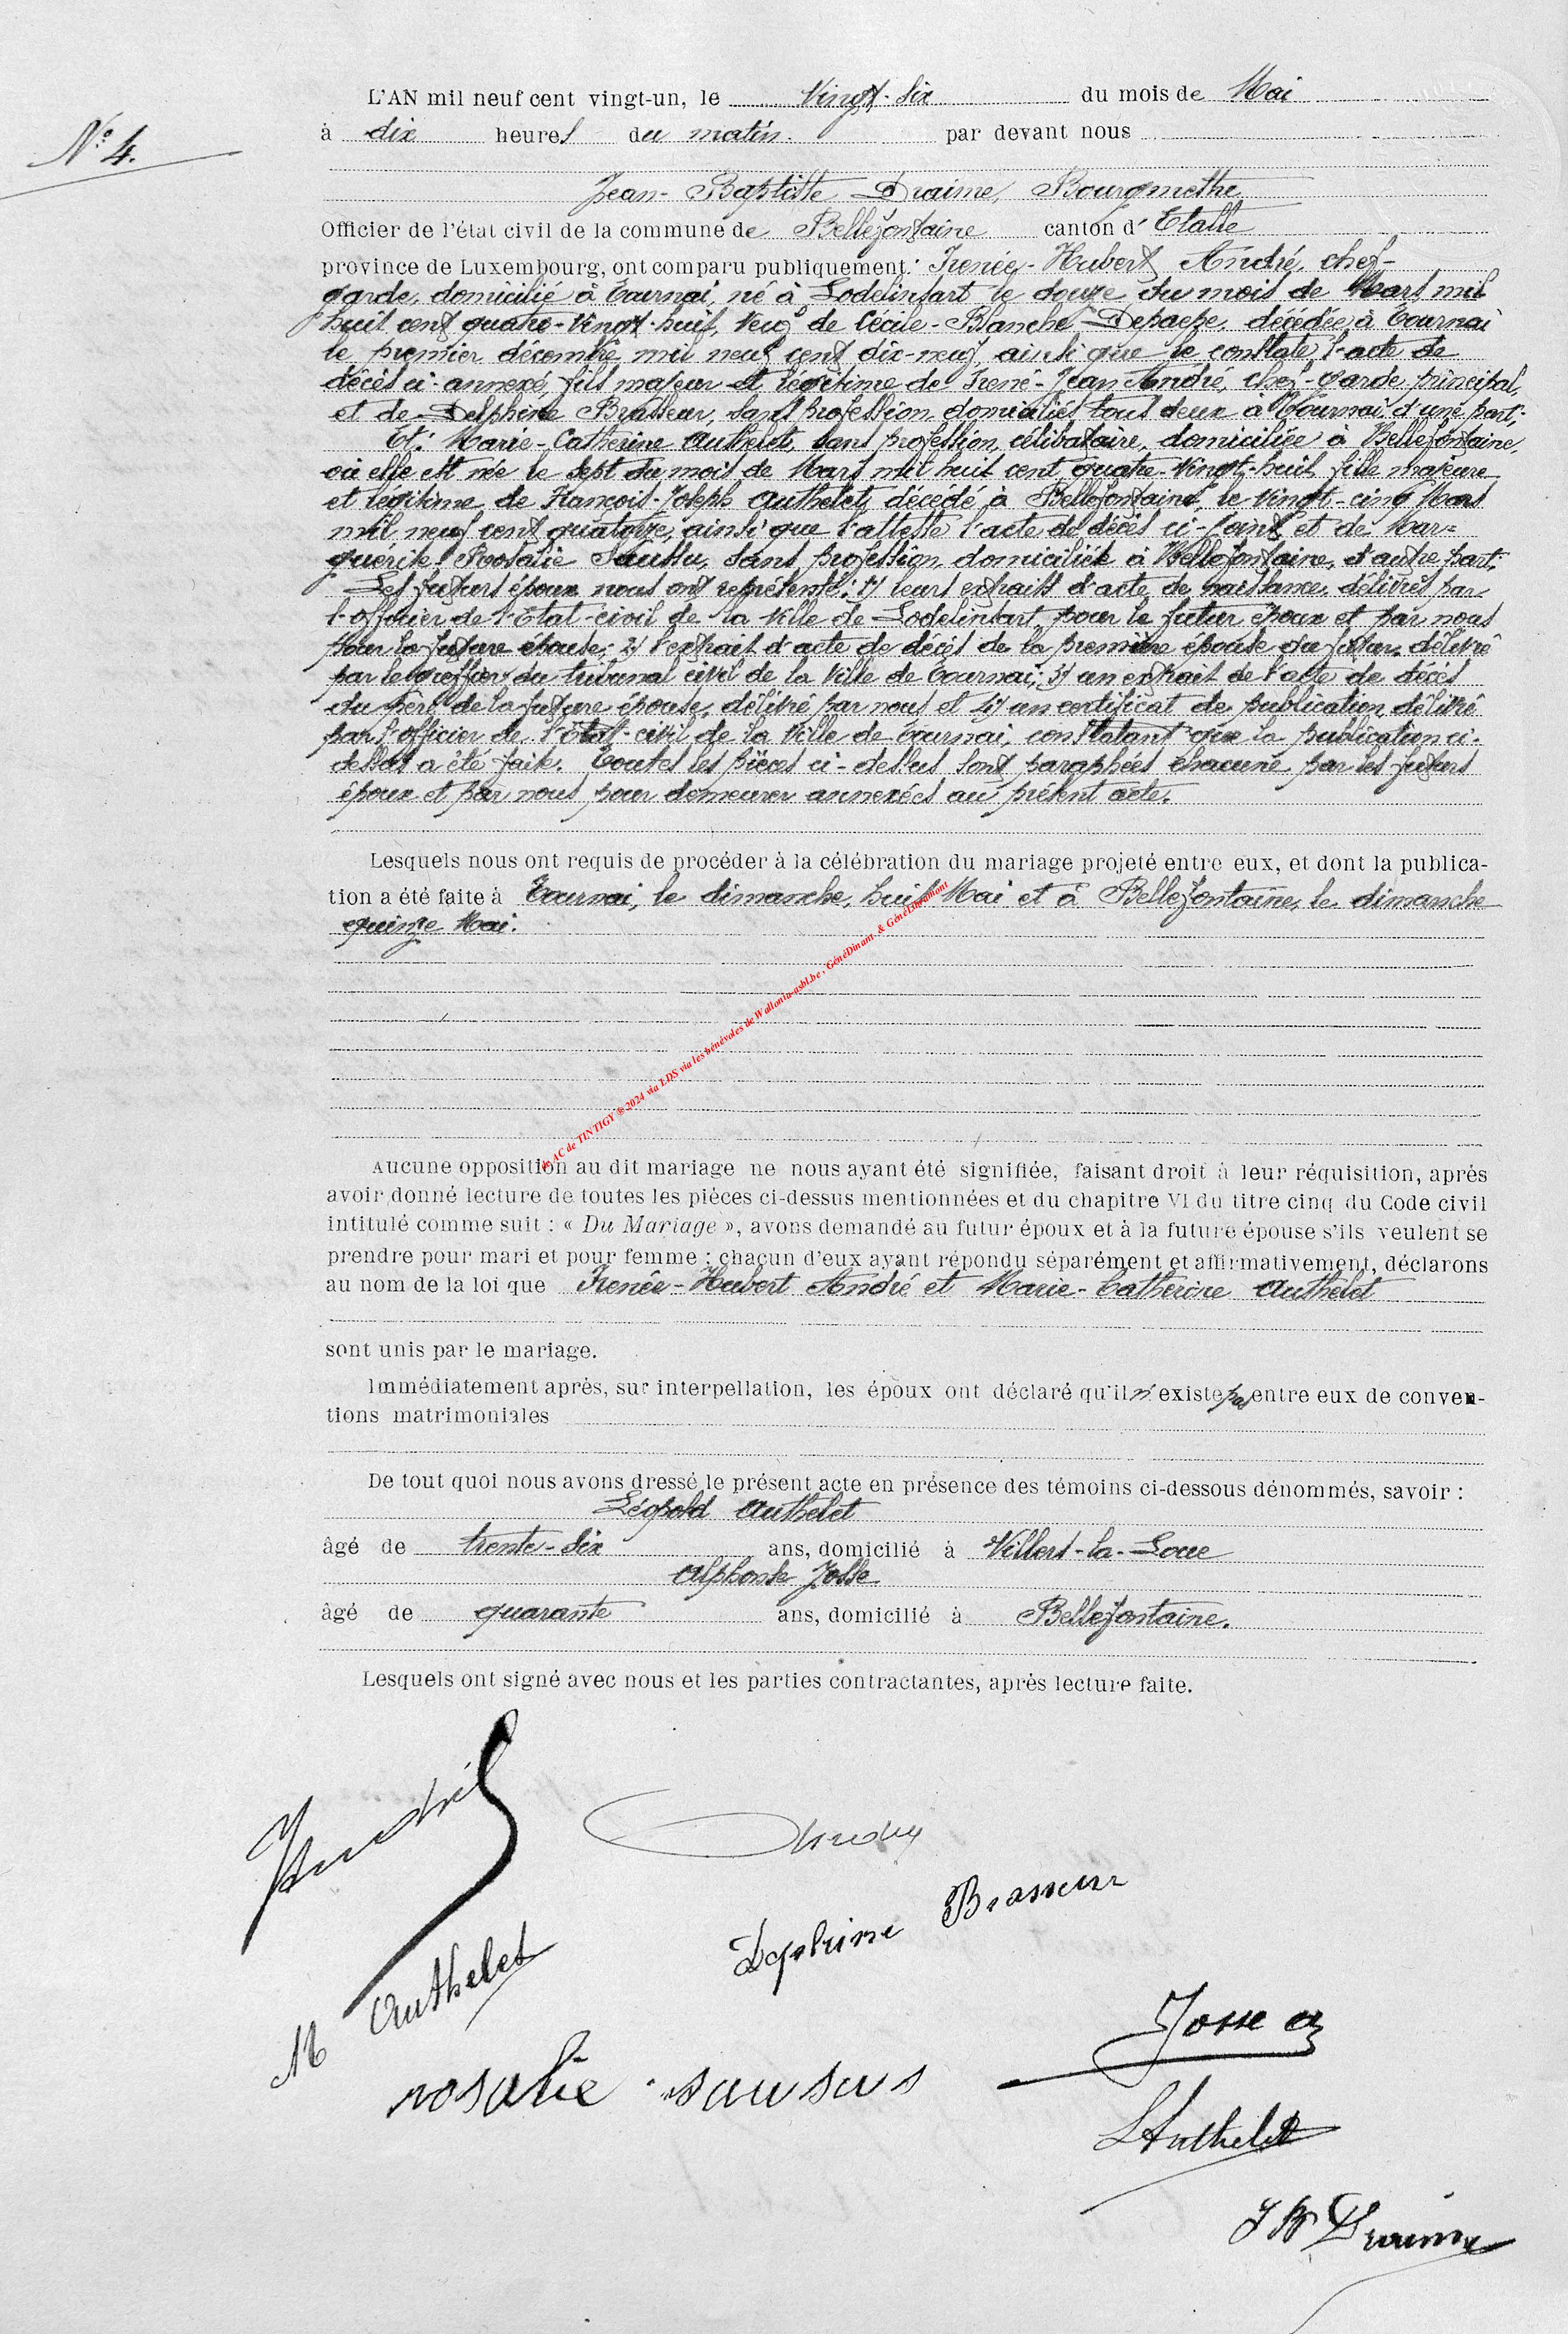 L'AN mil neuf cent vingt-un, le Vingt-six du mois de Mai
N° 4.
à dix heures du matin. par devant nous
Jean-Baptiste Draime, Bourgmestre
Officier de l'état civil de la commune de Bellefontaine canton d'Etalle
province de Luxembourg, ont comparu publiquement: Irenée-Hubert André, chef-
garde, domicilié à Tournai, né à Lodelinsart le douze du mois de Mars mil
huit cent quatre-vingt-huit, veuf de Cécile-Blanche Depaepe, décédée à Tournai
le premier décembre mil neuf cent dix-neuf, ainsi que le constate l'acte de
décès ci-annexé, fils majeur et légitime de Irené-Jean André, chef-garde principal,
et de Delphine Brasseur, sans profession, domiciliés tous deux à Tournai d'une part;
Et: Marie-Catherine Authelet, sans profession, célibataire, domiciliée à Bellefontaine,
où elle est née le sept du mois de Mars mil huit cent quatre-vingt-huit, fille majeure
et légitime de François-Joseph Authelet, décédé à Bellefontaine, le vingt-cinq Mars
mil neuf cent quatorze, ainsi que l'atteste l'acte de décès ci-joint et de Mar=
guerite Rosalie Saussu, sans profession, domiciliée à Bellefontaine, d'autre part;
Les futurs époux nous ont représenté: 1) leurs extraits d'acte de naissance, délivrés par
l'officier de l'Etat-civil de la ville de Lodelinsart, pour le futur époux et par nous
pour la future épouse; 2) l'extrait d'acte de décès de la première épouse du futur, délivré
par le greffier du tribunal civil de la ville de Tournai; 3) un extrait de l'acte de décès
du père de la future épouse, délivré par nous et 4) un certificat de publication délivré
par l'officier de l'Etat-civil de la Ville de Tournai, constatant que la publication ci-
dessus a été faite. Toutes les pièces ci-dessus sont paraphées chacune par les futurs
époux et par nous pour demeurer annexées au présent acte.
Lesquels nous ont requis de procéder à la célébration du mariage projeté entre eux, et dont la publica-
tion a été faite à Tournai, le dimanche, huit Mai et à Bellefontaine, le dimanche
quinze Mai.
de AC de TINTIGY ®2024 via LDS via les bénévoles de Wallonia-asbl.be , GénéDinant & GénéLibramont
Aucune opposition au dit mariage ne nous ayant été signifiée, faisant droit à leur réquisition, après
avoir donné lecture de toutes les pièces ci-dessus mentionnées et du chapitre VI du titre cinq du Code civil
intitulé comme suit : « Du Mariage », avons demandé au futur époux et à la future épouse s'ils veulent se
prendre pour mari et pour femme ; chacun d'eux ayant répondu séparément et affirmativement, déclarons
au nom de la loi que Irenée-Hubert André et Marie-Catherine Authelet
sont unis par le mariage.
Immédiatement après, sur interpellation, les époux ont déclaré qu'il n'existe pas entre eux de conven-
tions matrimoniales
De tout quoi nous avons dressé le présent acte en présence des témoins ci-dessous dénommés, savoir :
Léopold Authelet
âgé de trente-six ans, domicilié à Villers-la-Loue
Alphonse Josse
âgé de quarante ans, domicilié à Bellefontaine.
Lesquels ont signé avec nous et les parties contractantes, après lecture faite.
André
Delphine Brasseur
M Authelet
Josse A
rosalie sausus
L Authelet
J B Draime